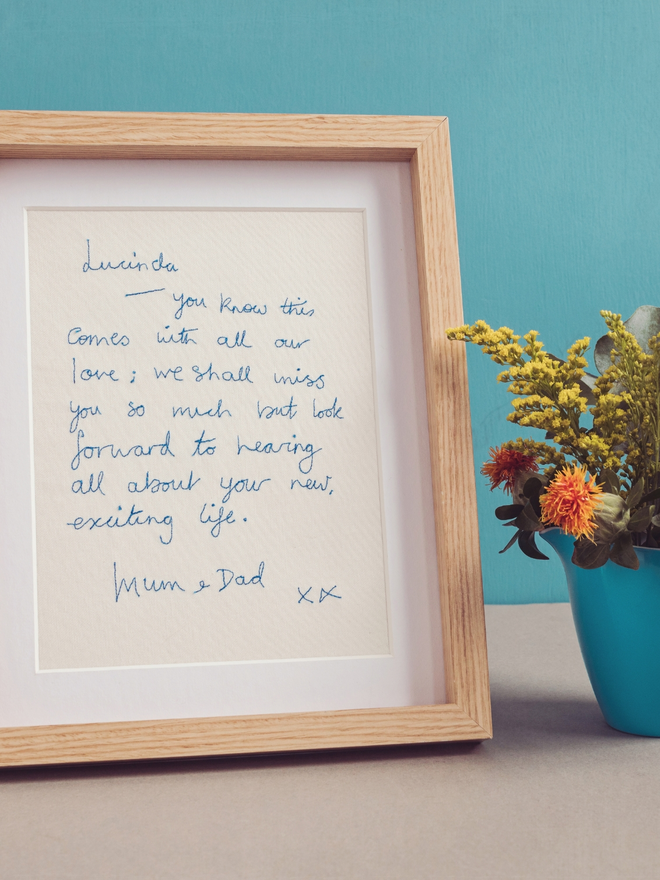 Lucinda
— you know this
comes with all our
love ; we shall miss
you so much but look
forward to hearing
all about your new,
exciting life.
Mum & Dad
xx